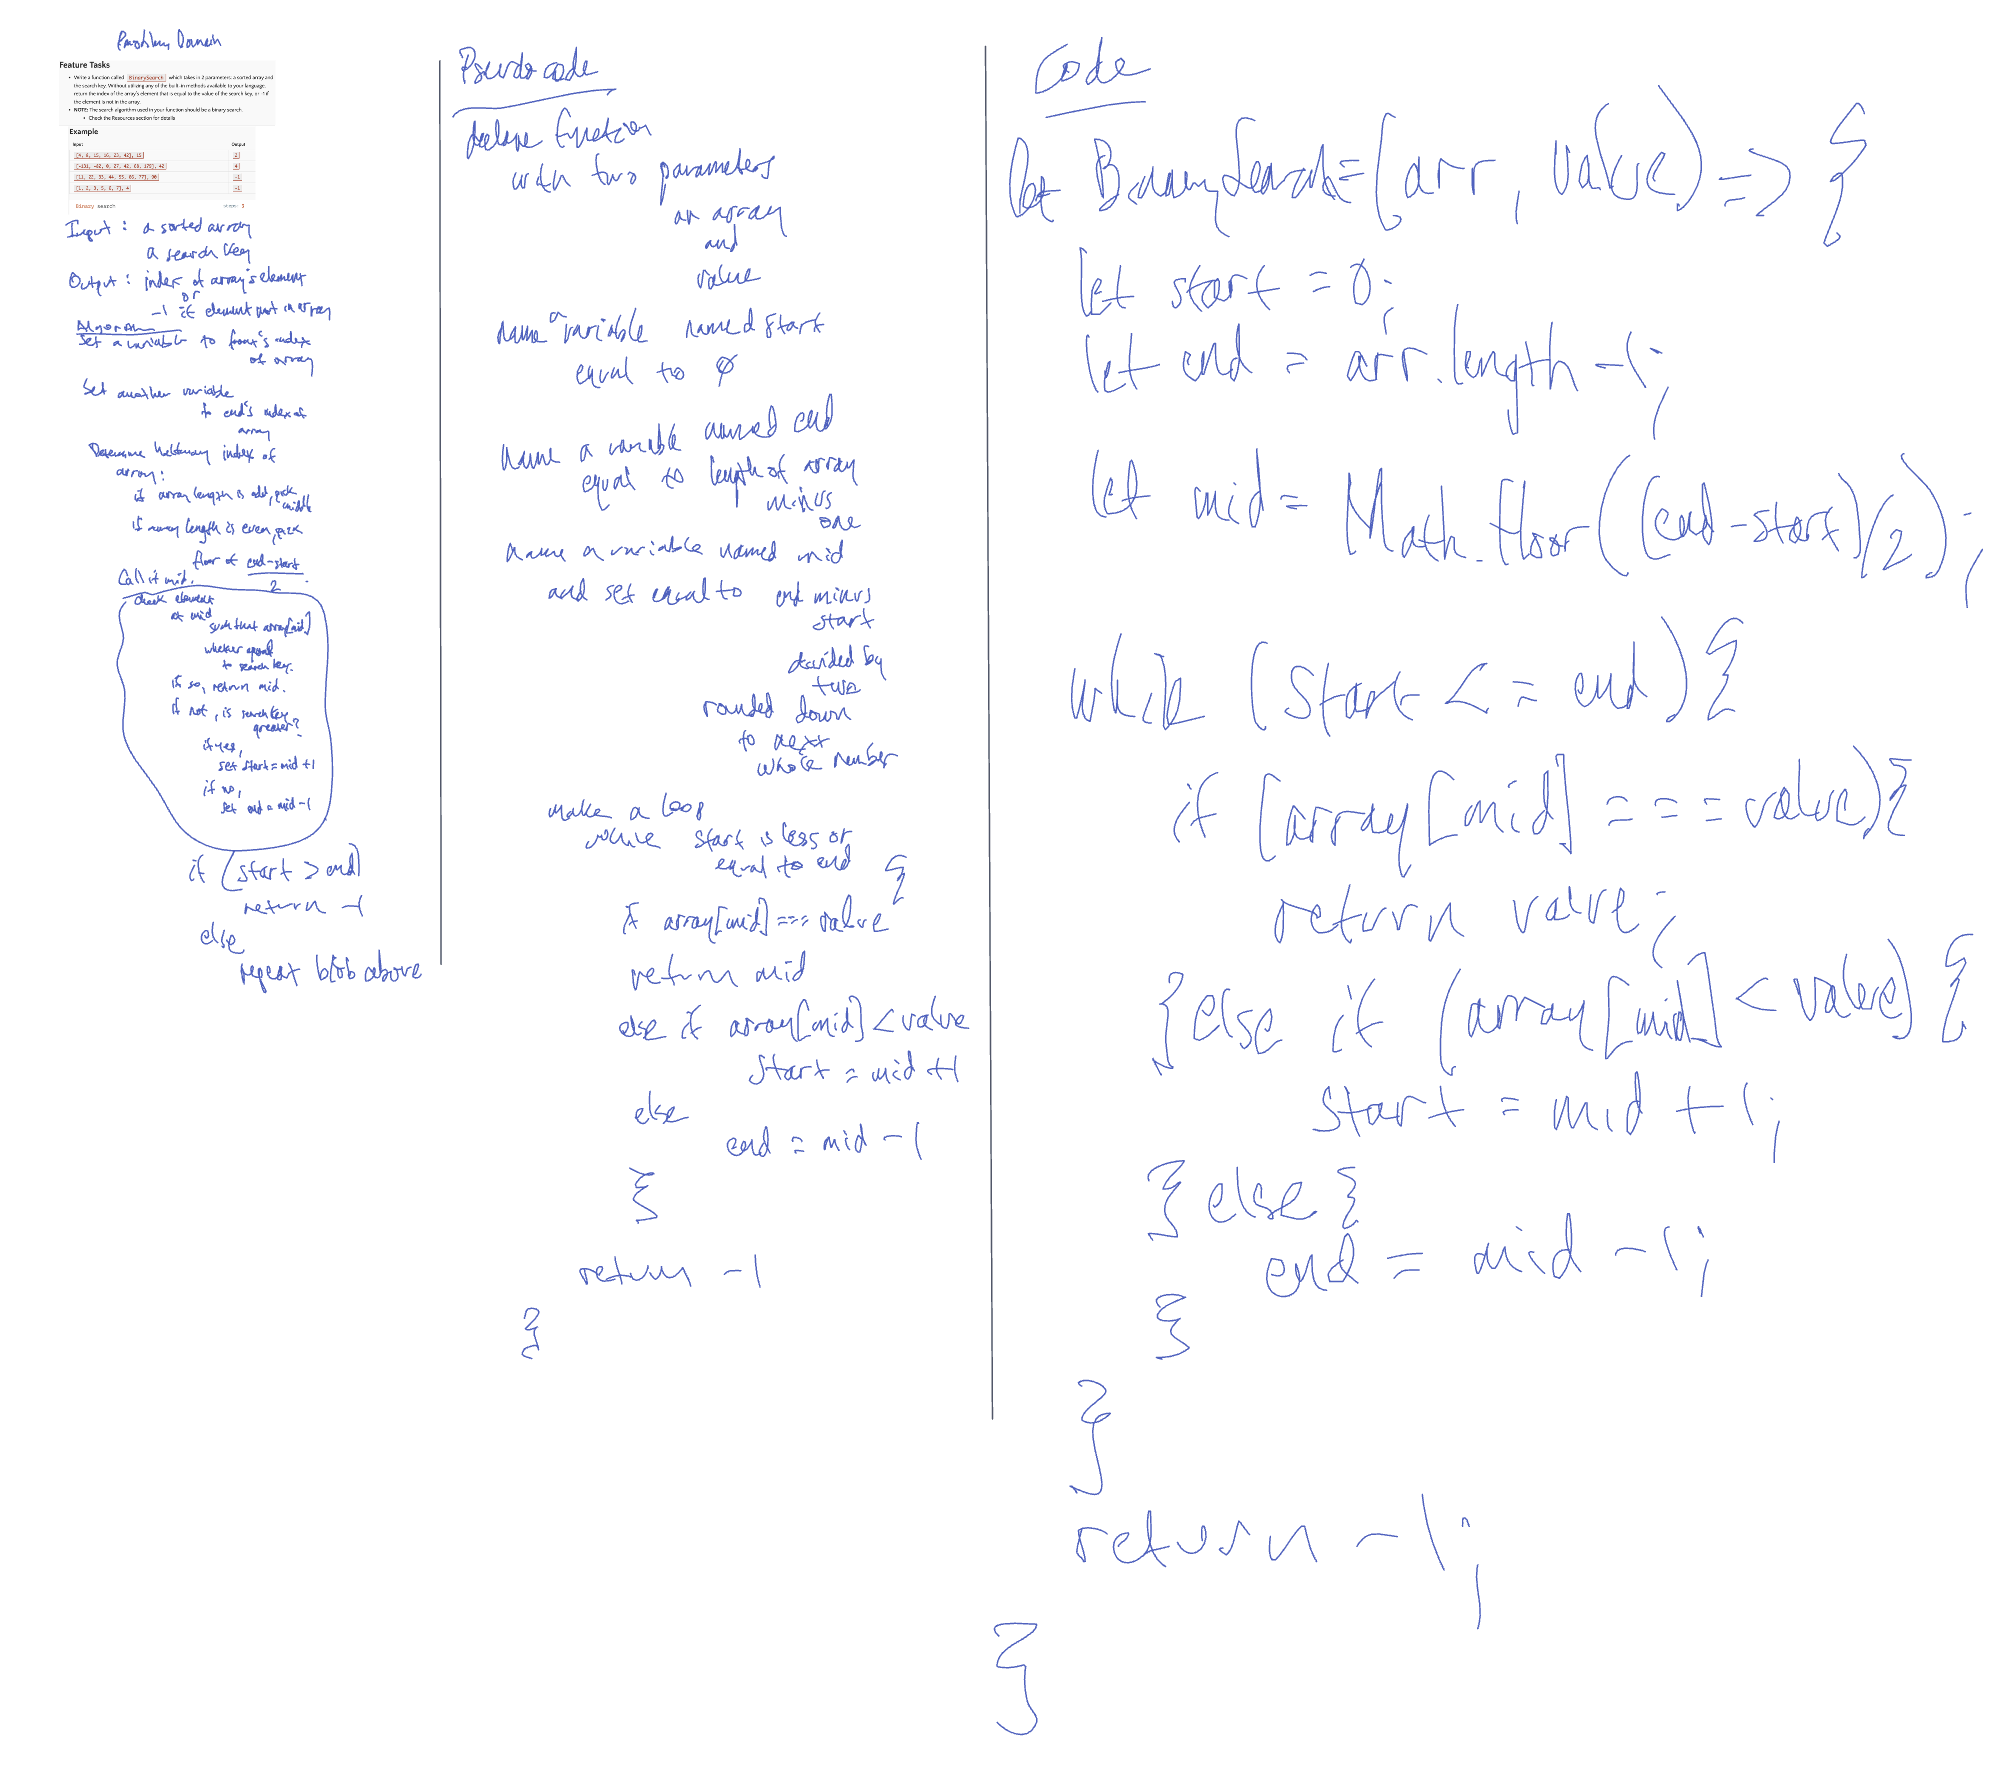 Problem Domain
Feature Tasks
• Write a function called BinarySearch which takes in 2 parameters: a sorted array and
the search key. Without utilizing any of the built-in methods available to your language,
return the index of the array's element that is equal to the value of the search key, or -1 if
the element is not in the array.
• NOTE: The search algorithm used in your function should be a binary search.
• Check the Resources section for details
Example
Input Output
[4, 8, 15, 16, 23, 42], 15 2
[-131, -82, 0, 27, 42, 68, 179], 42 4
[11, 22, 33, 44, 55, 66, 77], 90 -1
[1, 2, 3, 5, 6, 7], 4 -1
Binary search
Input : a sorted array
a search key
Output : index of array's element
or
-1 if element not in array
Algorithm
Set a variable to front's index
of array
Set another variable
to end's index of
array
Determine halfway index of
array :
if array length is odd, pick
middle
if array length is even, pick
floor of end-start
2
Call it mid.
check element
at mid
such that array[mid]
whether equal
to search key.
if so, return mid.
if not, is search key
greater?
if yes,
set start = mid +1
if no,
set end = mid -1
if (start > end)
return -1
else
repeat blob above
Pseudo code
declare function
with two parameters
an array
and
value
name a variable named start
equal to 0
name a variable named end
equal to length of array
minus
one
name a variable named mid
and set equal to end minus
start
divided by
two
rounded down
to next
whole number
make a loop
while start is less or
equal to end {
if array[mid] === value
return mid
else if array[mid] < value
start = mid +1
else
end = mid -1
}
return -1
}
Code
let BinarySearch=(arr, value) => {
let start = 0;
let end = arr.length -1;
let mid = Math.floor((end-start)/2);
while (start <= end){
if (array[mid] === value){
return value;
}else if (array[mid] < value) {
start = mid +1;
} else {
end = mid -1;
}
}
return -1;
}